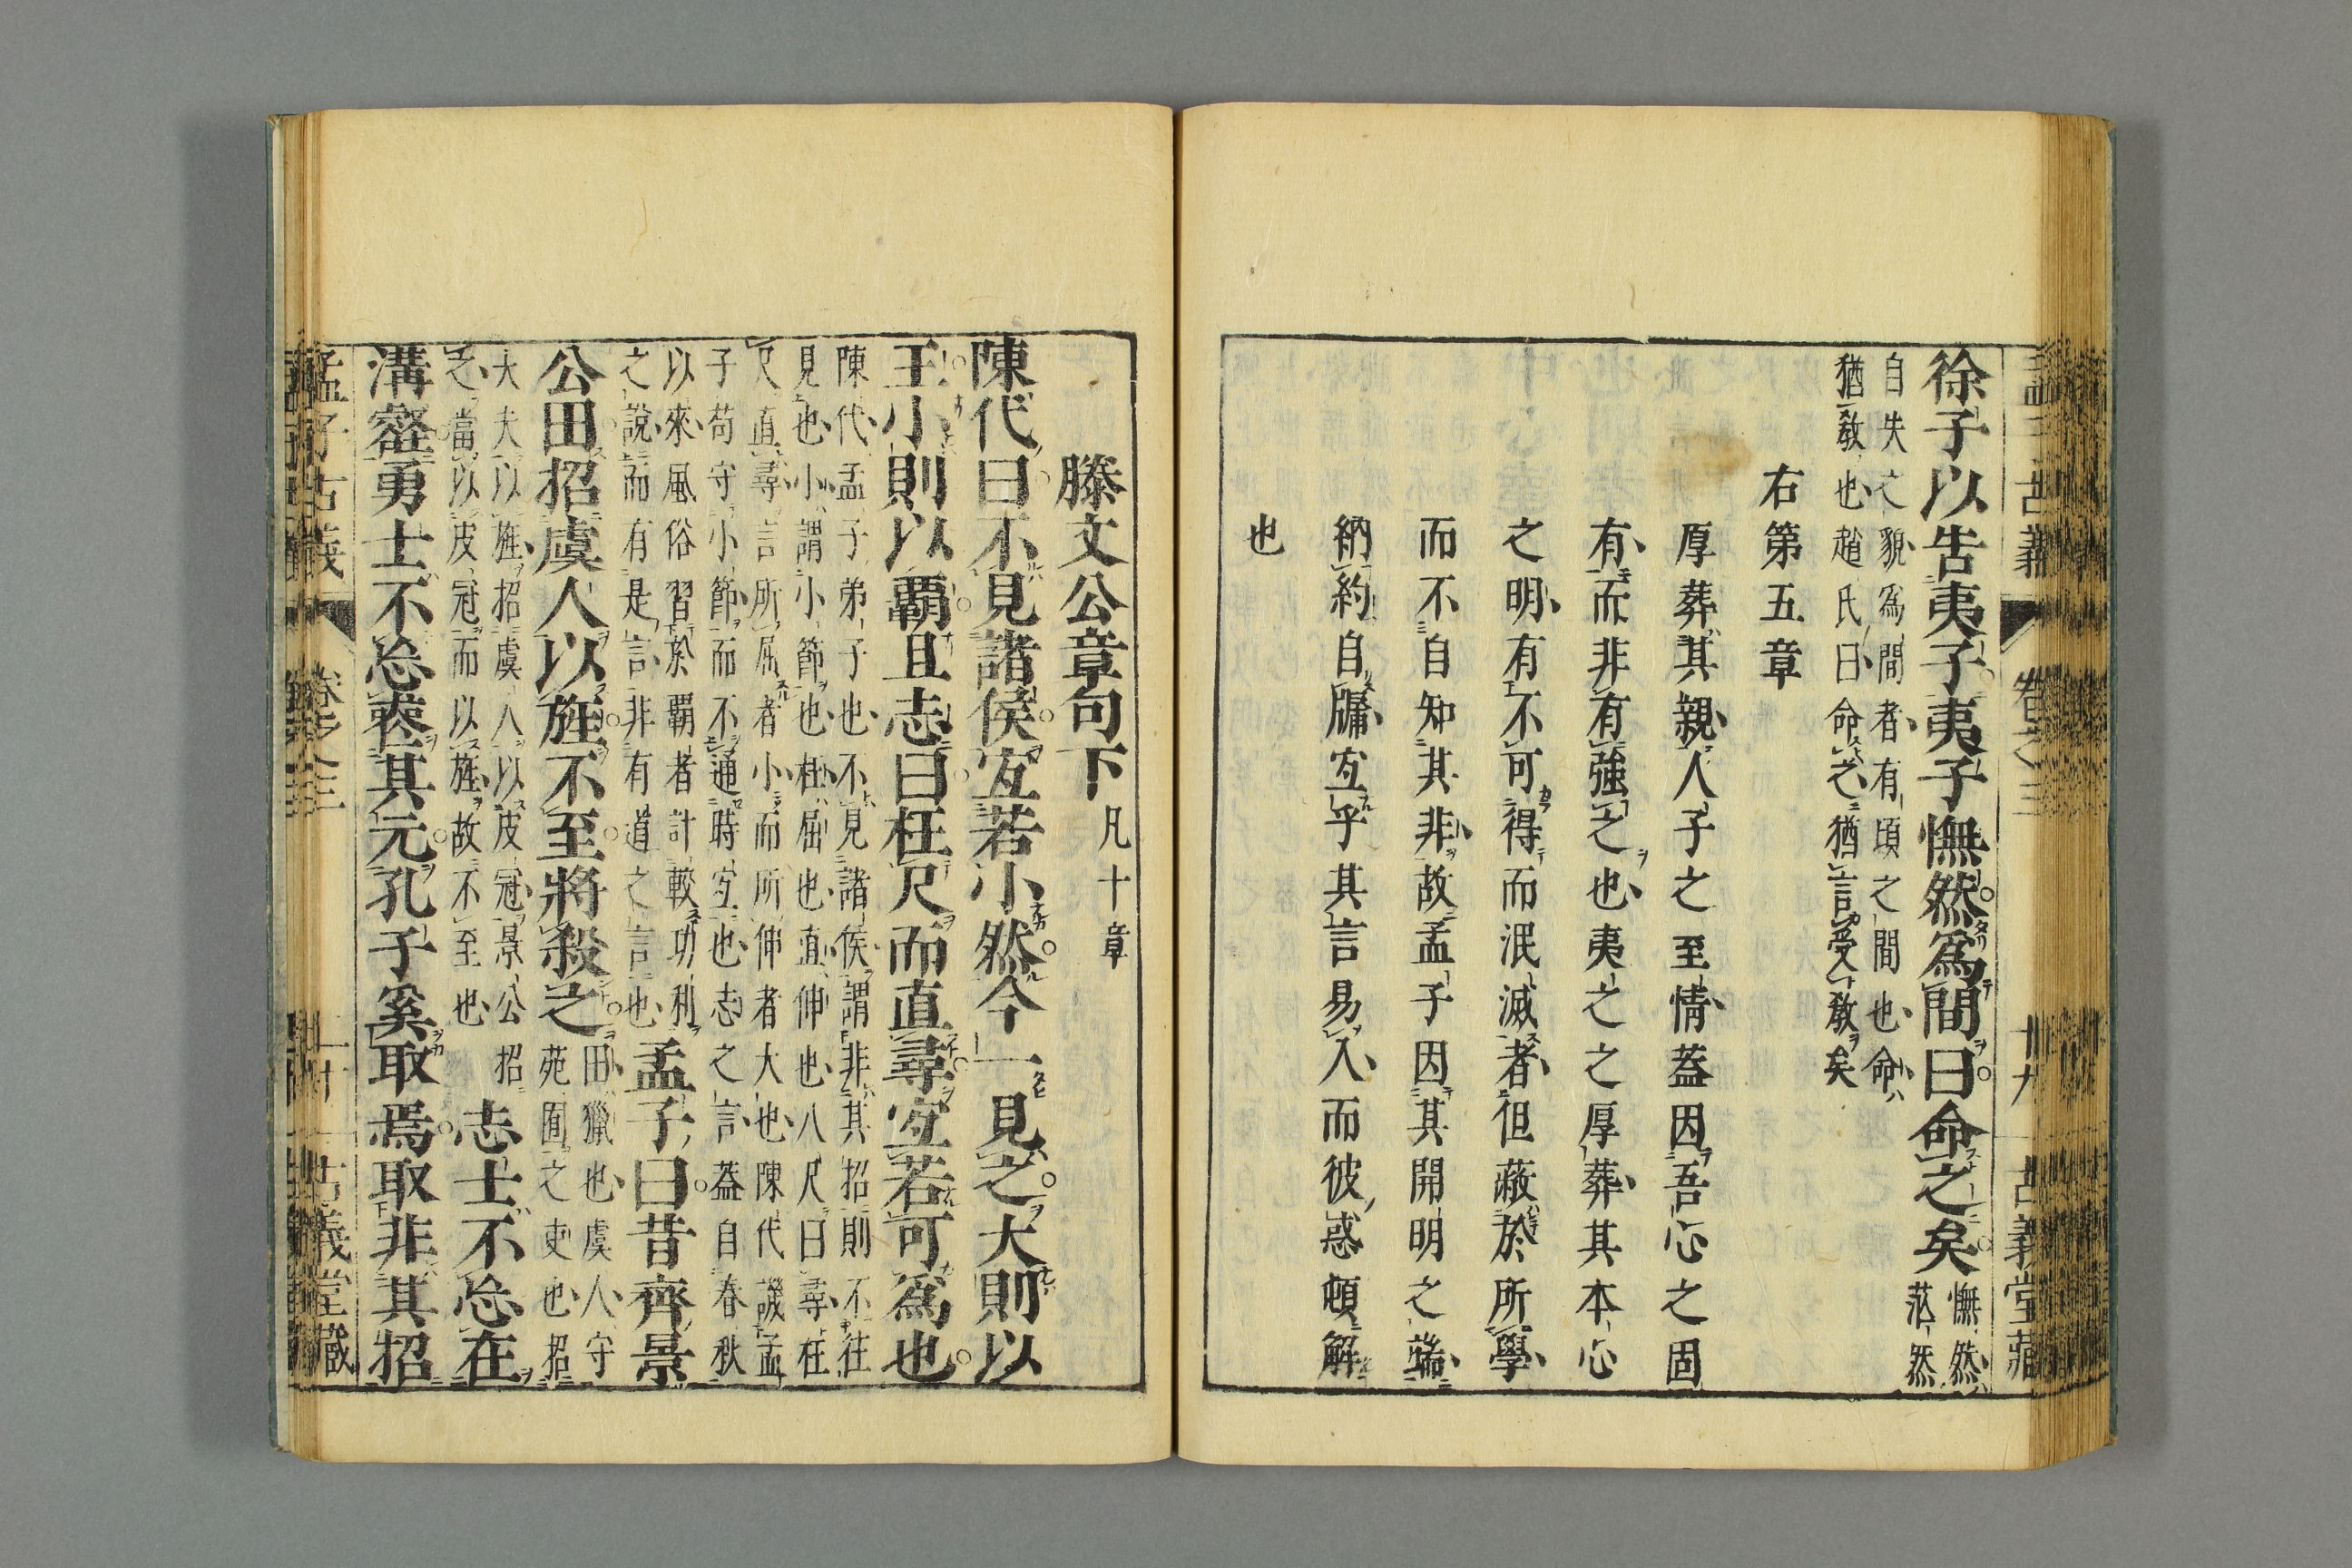 徐子以告夷子夷子憮然爲間曰命之矣憮然茫然
自失之貌爲間者有頃之間也命
猶敎也趙氏曰命之猶言受敎矣
右第五章
厚葬其親人子之至情葢因吾心之固
有而非有強之也夷之之厚葬其本心
之明有不可得而泯滅者但蔽於所學
而不自知其非故孟子因其開明之端
納約自牖宜乎其言易入而彼惑頓解
也
孟子古義 卷之三 十九 古義堂藏
滕文公章句下凡十章
陳代曰不見諸侯宜若小然今一見之大則以
王小則以覇且志曰枉尺而直尋宜若可爲也
陳代孟子弟子也不見諸侯謂非其招則不往
見也小謂小節也枉屈也直伸也八尺曰尋枉
尺直尋言所屈者小而所伸者大也陳代譏孟
子苟守小節而不通時宜也志之言葢自春秋
以來風俗習於覇者計較功利
之說而有是言非有道之言也
孟子曰昔齊景
公田招虞人以旌不至將殺之田獵也虞人守苑囿之吏也招
大夫以旌招虞人以皮冠景公招
之當以皮冠而以旌故不至也
志士不忘在
溝壑勇士不忘喪其元孔子奚取焉取非其招
孟子古義 卷之三 古義堂藏